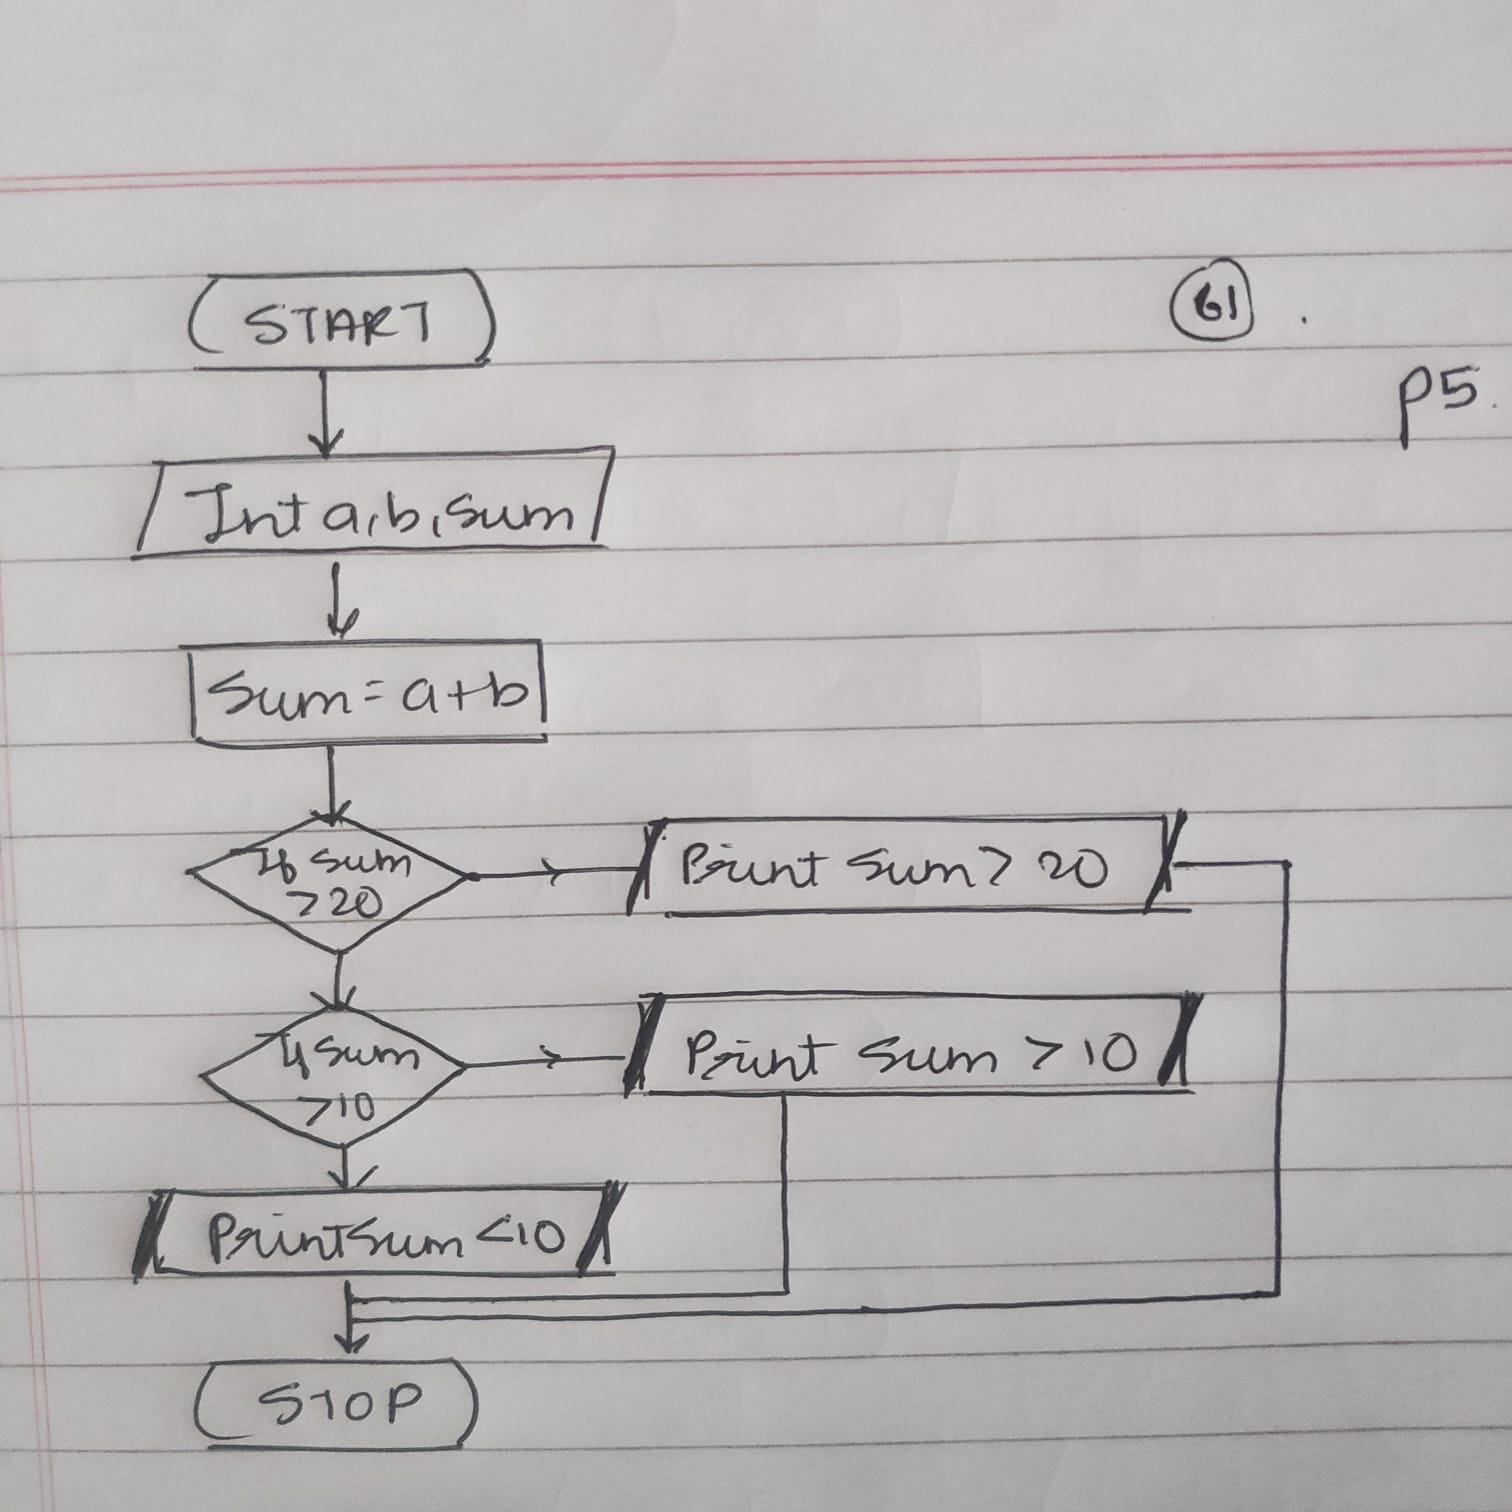 START
61 .
P5.
Int a, b, sum
Sum = a+b
If sum
>20
Print sum > 20
If sum
>10
Print sum > 10
Print sum <10
STOP